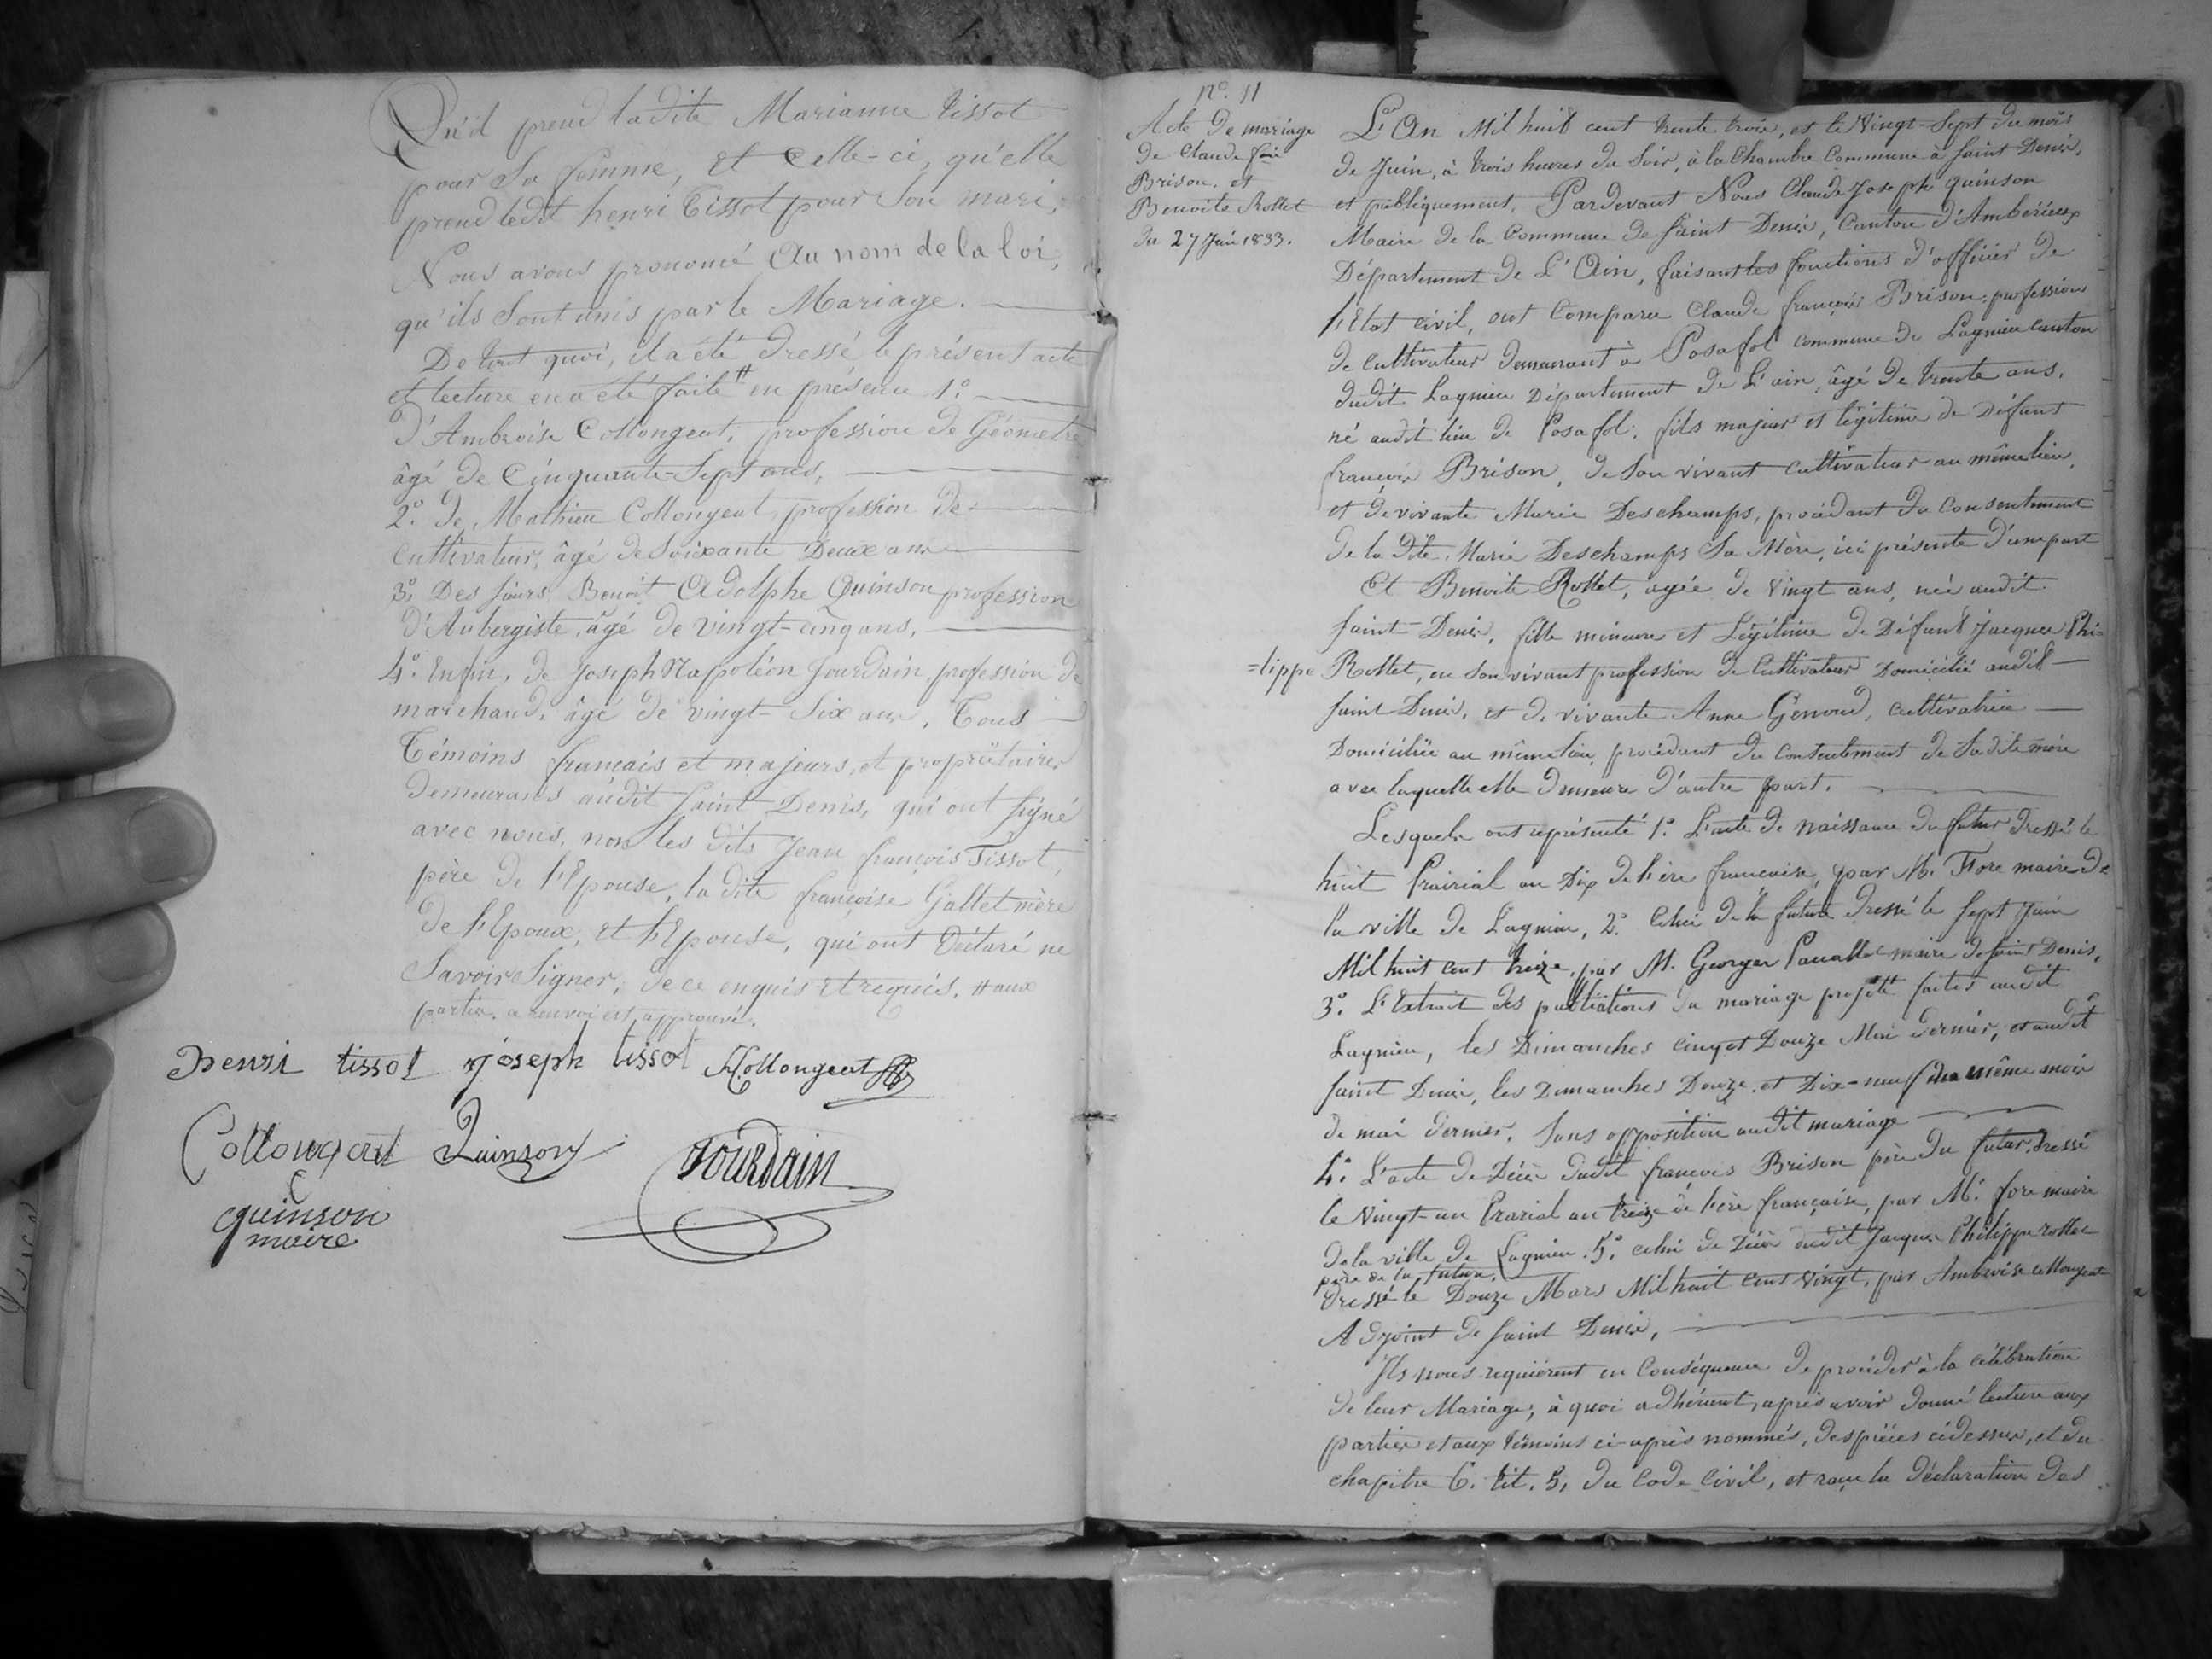 Qu'il prend ladite Marianne tissot
pour Sa femme, et Celle-ci, qu'elle
prend ledit henri Tissot pour Son mari,
Nous avons prononcé Au nom de la loi,
qu'ils Sont unis par le Mariage.
De tout quoi, il a été dressé le présent acte
et lecture en a été faite # en présence 1º.
d'Ambroise Collongeat, profession de Géometre
âgé de Cinquante-Sept ans,
2º. de Mathieu Collongeat, profession de
Cultivateur, âgé de Soixante Deux ans
3º. Des Sieurs Benoit Adolphe Quinson profession
d'Aubergiste, âgé de vingt-cinq ans,
4º. Enfin, de Joseph Napoléon Jourdain, profession de
marchand, âgé de vingt-Six ans, Tous
Témoins français et majeurs, et propriétaires
demeurans audit Saint Denis, qui ont Signé
avec nous, non les dits Jean françois Tissot,
père de l'Epouse, la dite françoise Gallet mère
de l'Epoux, et l'Epouse, qui ont Déclaré ne
Savoir Signer, de ce enquis et requis. # aux
parties. a renvoi est approuvé.
henri tissot joseph tissot A. Collongeat
Collongeat Quinson Jourdain
quinson
maire
nº. 11
Acte de mariage
de Claude fois
Brison. et
Benoite Rollet
du 27 Juin 1833.
L'An Mil huit cent trente trois, et le Vingt-Sept du mois
de Juin, à trois heures du Soir, à la Chambre Commune à Saint Denis,
et publiquement. Pardevant Nous Claude Joseph quinson
Maire de la Commune de Saint Denis, Canton d'Ambérieux
Département de L'Ain, faisant les fonctions d'officier de
l'Etat civil, ont Comparu Claude françois Brison, profession
de cultivateur demeurant à Posafol commune de Lagnieu canton
dudit Lagnieu Département de L'ain, âgé de trente ans,
né audit lieu de Posafol, fils majeur et légitime de Défunt
françois Brison, de Son vivant Cultivateur au même lieu,
et de vivante Marie Deschamps, procédant du Consentement
de la dite Marie Deschamps Sa Mère, ici présente d'une part
Et Benoite Rollet, agée de Vingt ans, née audit
Saint-Denis, fille mineure et Légitime de Défunt Jacques Phi-
=lippe Rollet, en Son vivant profession de Cultivateur Domicilié audit
Saint Denis, et de vivante Anne Genoud, cultivatrice
Domiciliée au même lieu, procédant du Consentement de Sadite mère
avec laquelle elle demeure d'autre part.
Lesquels ont représenté 1º. L'acte de naissance du futur Dressé le
huit Prairial an Dix de l'ère française, par M. Fore maire de
la ville de Lagnieu, 2º. Celui de la future dressé le Sept Juin
Mil huit cent treize, par M. Georges maire de Saint Denis,
3º. L'Extrait des publications du mariage projeté faites audit
Lagnieu, les Dimanches Cinq et Douze Mai dernier, et audit
Saint Denis, les Dimanches Douze et Dix-neuf du même mois
de mai dernier, Sans opposition audit mariage
4º. L'acte de Décès dudit françois Brison père du futur, dressé
le Vingt-un Prarial an treize de l'ère française, par M. fore maire
de la ville de Lagnieu. 5º. celui de Décès dudit Jacques Philippe rollet
père de la future.
dressé le Douze Mars Mil huit Cent Vingt, par Ambroise Collongeat
Adjoint de Saint Denis,
Ils nous requièrent en Conséquence de procéder à la célébration
de leur Mariage; à quoi adhérent, après avoir donné lecture aux
parties et aux témoins ci-après nommés, des pièces ci dessus, et du
chapitre 6. tit. 5, du Code Civil, et reçu la déclaration des